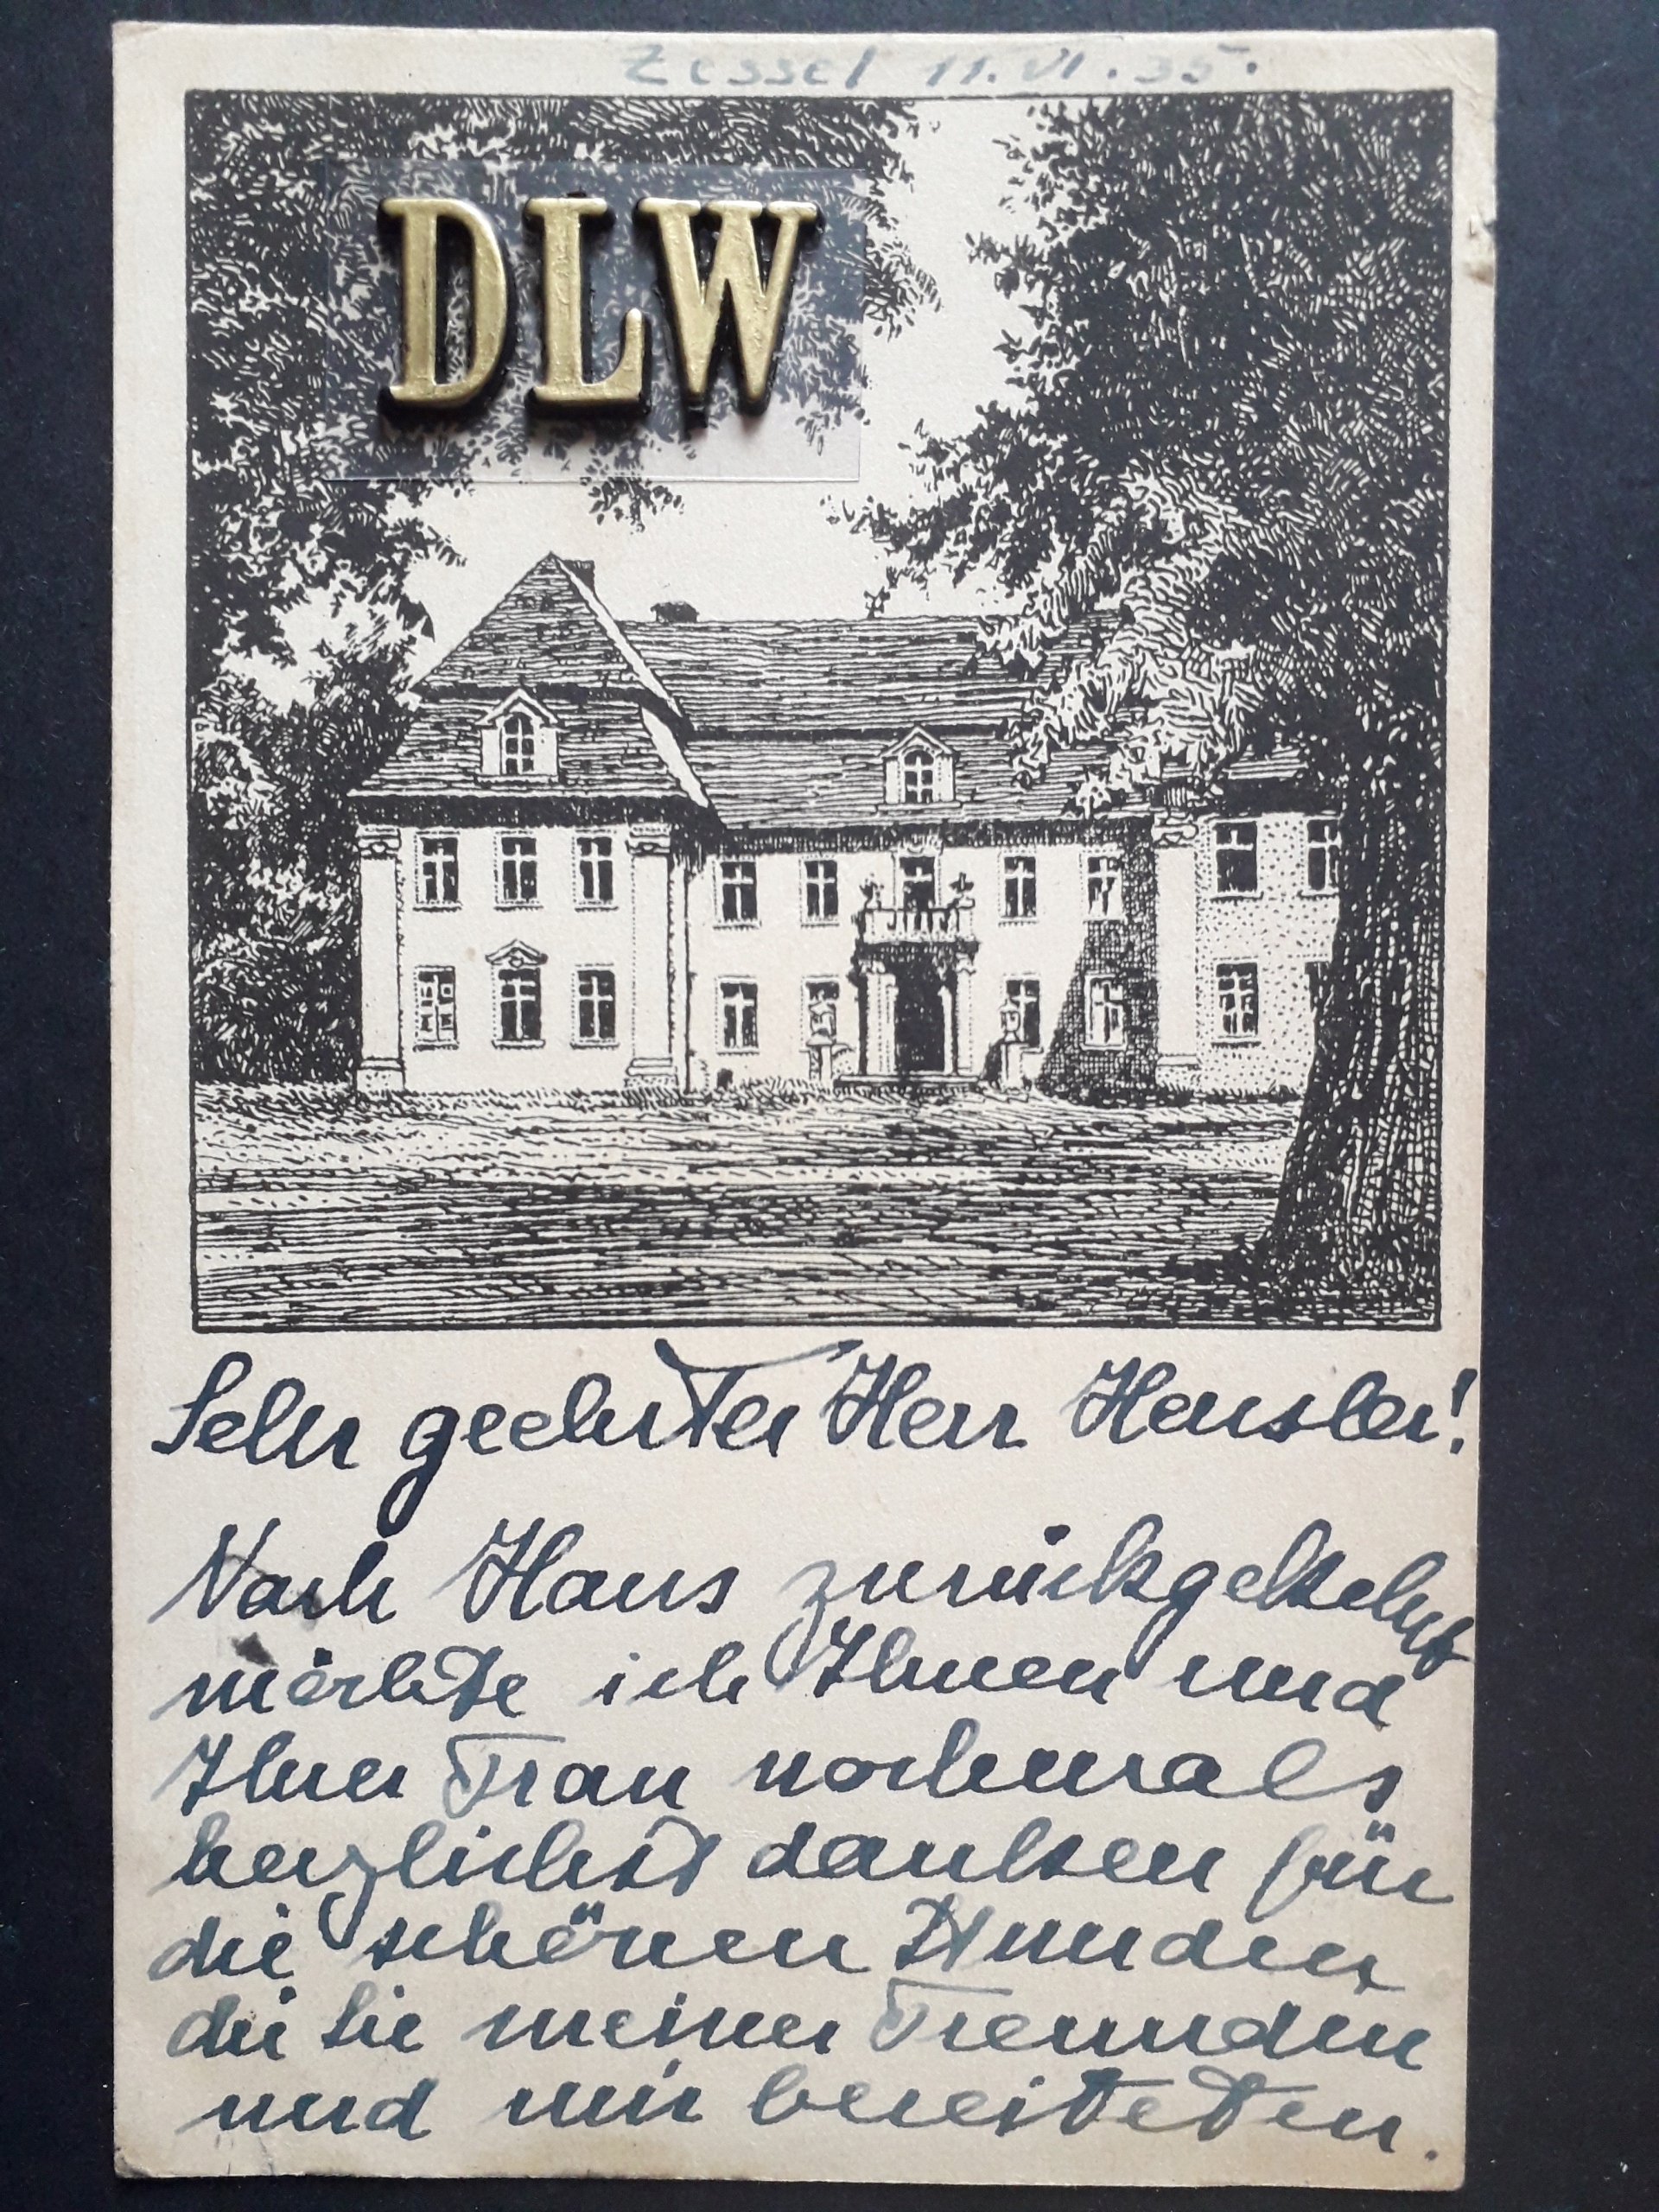 Zessel 11.VI.35.
DLW
Sehr geehrter Herr Hensler!
Nach Haus zurückgekehrt
möchte ich Ihnen und
Ihrer Frau nochmals
herzlichst danken für
die schönen Stunden
die Sie meiner Freundin
und mir bereiteten.